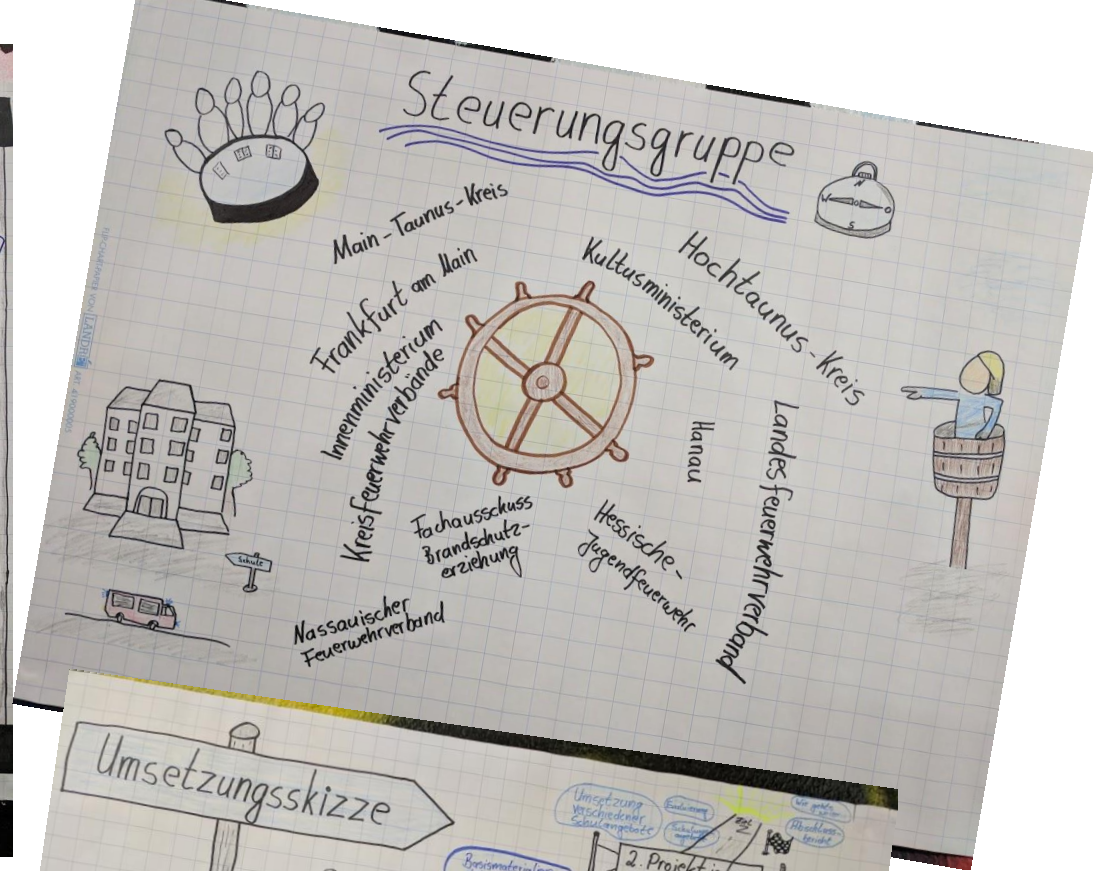 Steuerungsgruppe
Main-Taunus-Kreis
Frankfurt am Main
Innenministerium
Kreisfeuerwehrverbände
Kultusministerium
Hochtaunus-Kreis
Hanau
Landesfeuerwehrverband
Fachausschuss
Brandschutz-
erziehung
Hessische-
Jugendfeuerwehr
Nassauischer
Feuerwehrverband
N
W
O
S
Schule
Umsetzungsskizze
Umsetzung
verschiedener
Schulangebote
Evaluierung
Abschluss-
bericht
Ziel
Basismaterialien
2. Projekt